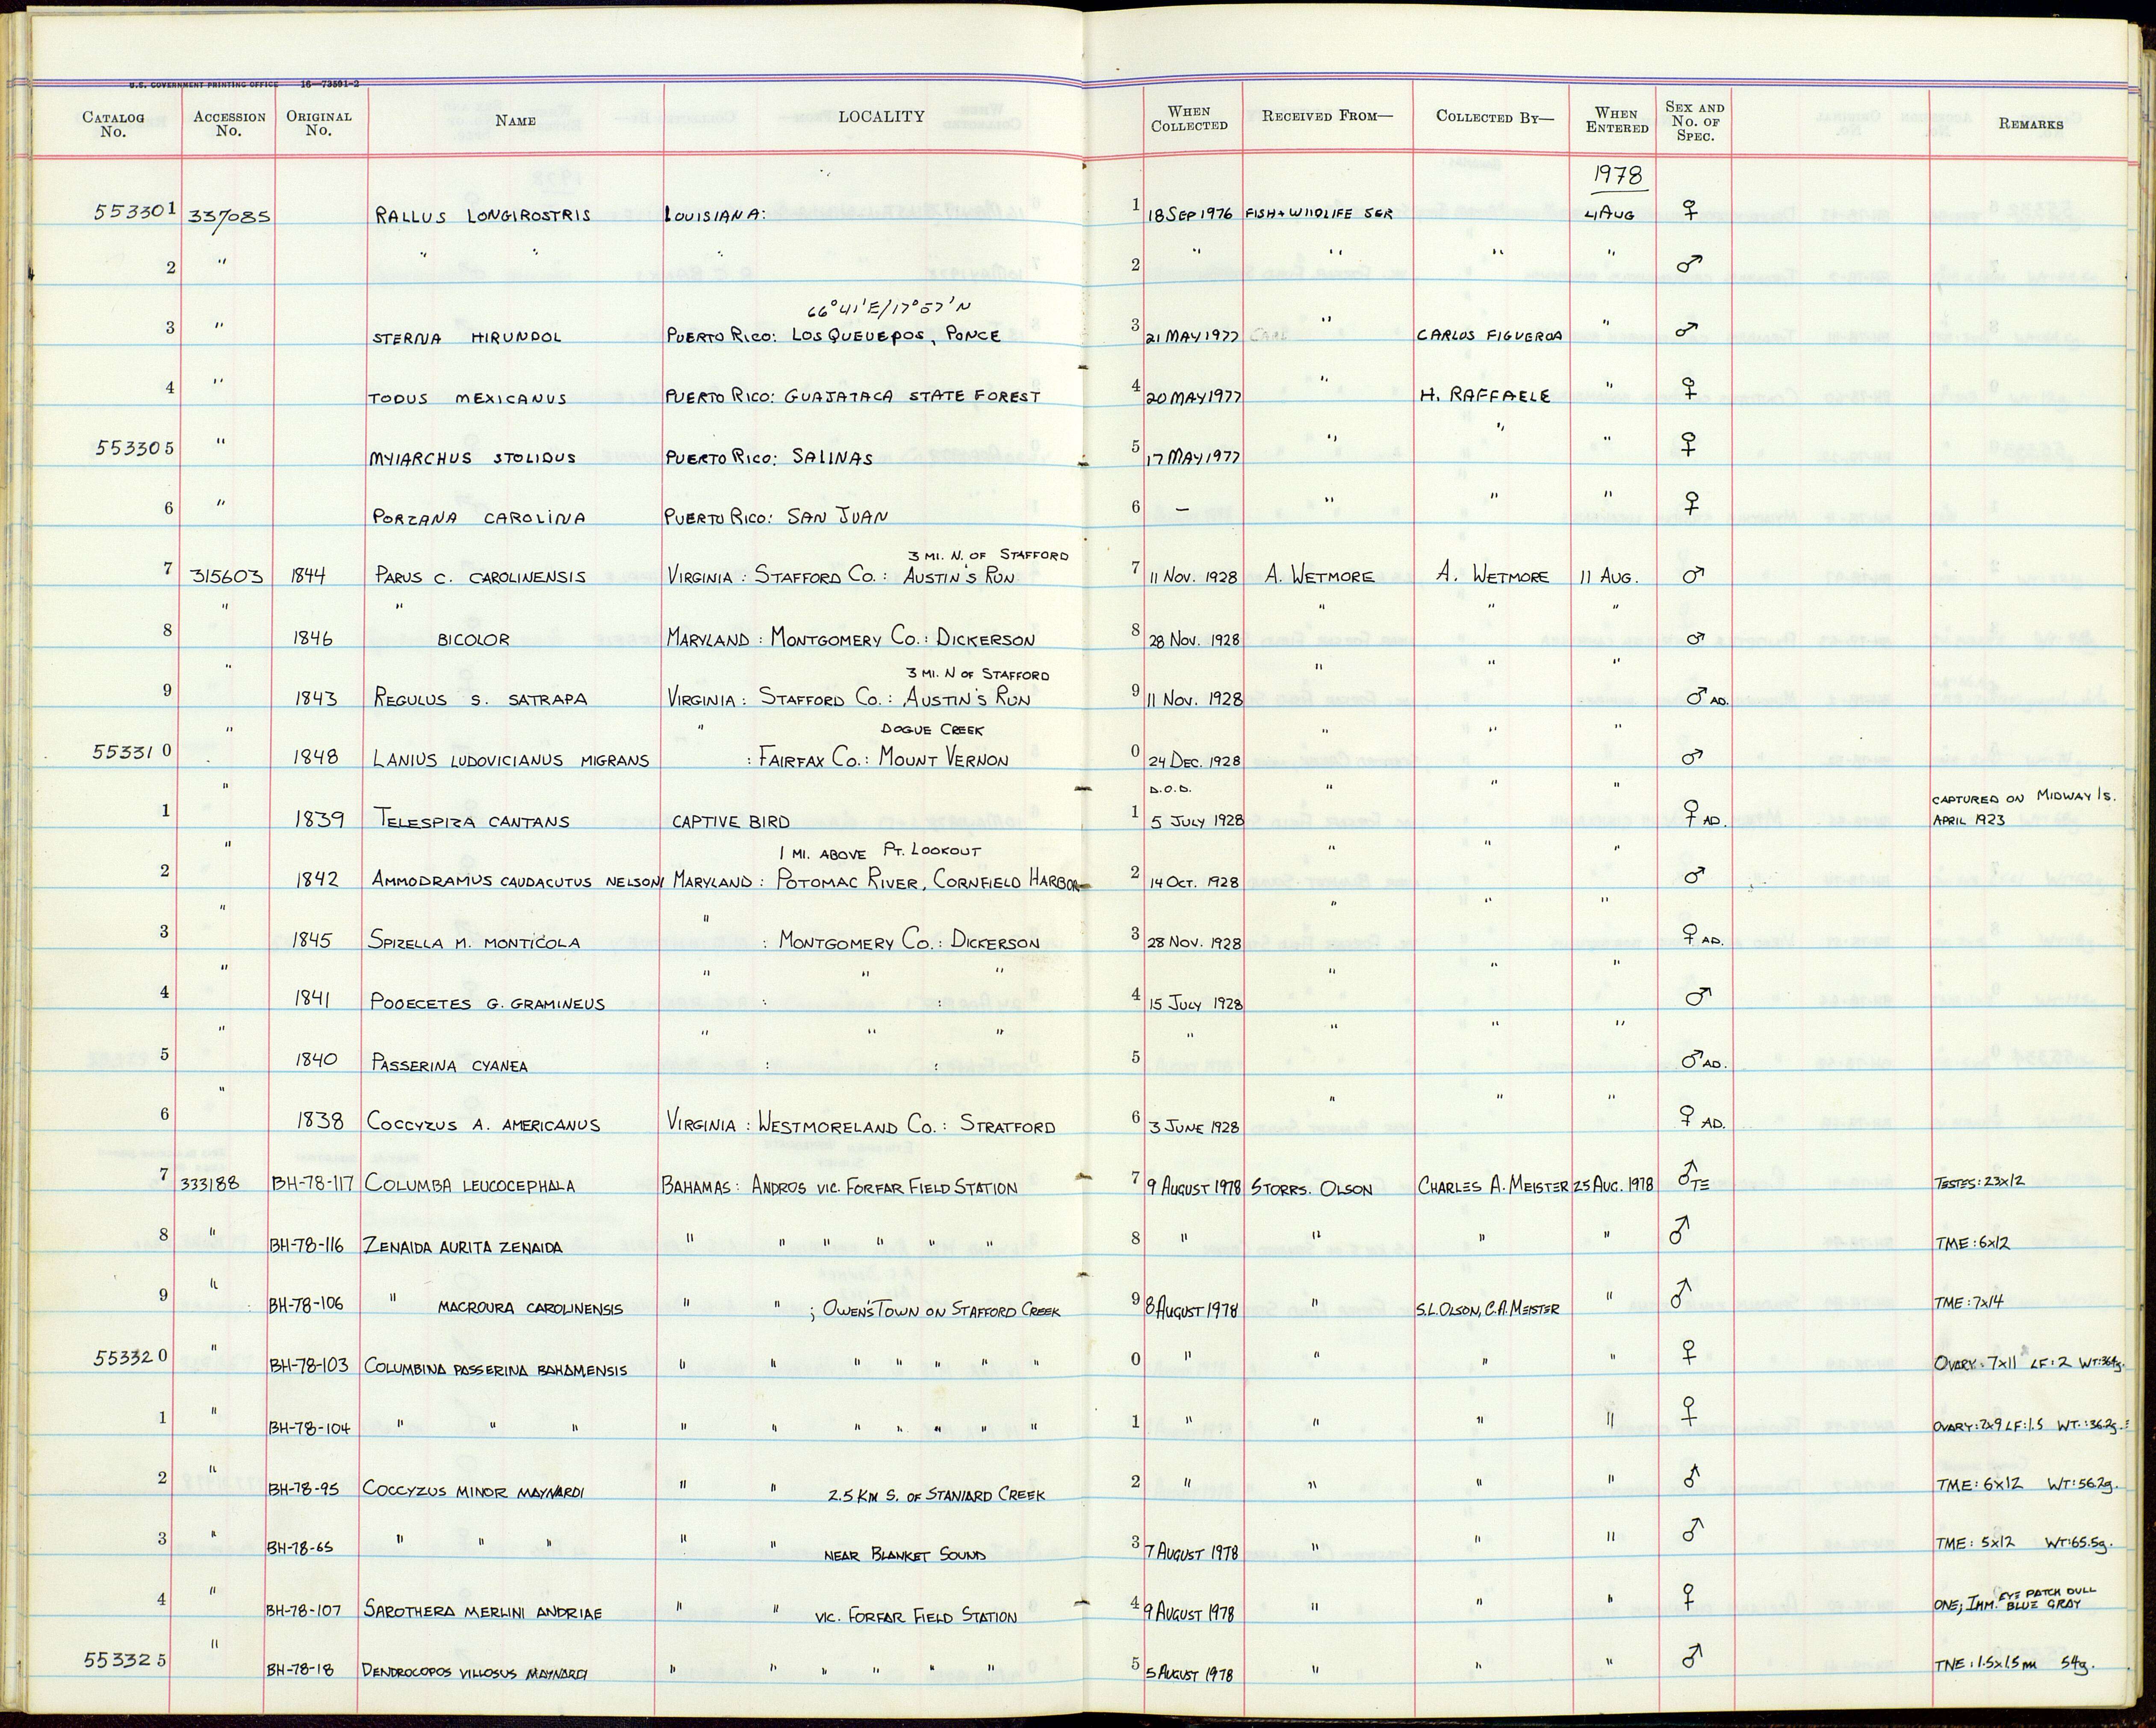 U.S. GOVERNMENT PRINTING OFFICE 16—73591-2
CATALOG No. ACCESSION No. ORIGINAL No. NAME LOCALITY WHEN COLLECTED RECEIVED FROM— COLLECTED BY— WHEN ENTERED SEX AND No. OF SPEC. REMARKS
1978
553301 337085 RALLUS LONGIROSTRIS LOUISIANA: 1 18 SEP 1976 FISH + WILDLIFE SER 4 AUG ♀
2 " " " " 2 " " " " ♂
66°41'E/17°57'N
3 " STERNA HIRUNDOL PUERTO RICO: LOS QUEUEPOS, PONCE 3 21 MAY 1977 " CARLOS FIGUEROA " ♂
4 " TODUS MEXICANUS PUERTO RICO: GUAJATACA STATE FOREST 4 20 MAY 1977 " H. RAFFAELE " ♀
553305 " MYIARCHUS STOLIDUS PUERTO RICO: SALINAS 5 17 MAY 1977 " " " ♀
6 " PORZANA CAROLINA PUERTO RICO: SAN JUAN 6 — " " " ♀
3 MI. N. OF STAFFORD
7 315603 1844 PARUS C. CAROLINENSIS VIRGINIA : STAFFORD CO. : AUSTIN'S RUN 7 11 NOV. 1928 A. WETMORE A. WETMORE 11 AUG. ♂
8 " 1846 " BICOLOR MARYLAND : MONTGOMERY CO. : DICKERSON 8 28 NOV. 1928 " " " ♂
3 MI. N OF STAFFORD
9 " 1843 REGULUS S. SATRAPA VIRGINIA : STAFFORD CO. : AUSTIN'S RUN 9 11 NOV. 1928 " " " ♂ AD.
DOGUE CREEK
553310 " 1848 LANIUS LUDOVICIANUS MIGRANS " : FAIRFAX CO. : MOUNT VERNON 0 24 DEC. 1928 " " " ♂
D.O.D. CAPTURED ON MIDWAY IS.
1 " 1839 TELESPIZA CANTANS CAPTIVE BIRD 1 5 JULY 1928 " " " ♀ AD. APRIL 1923
1 MI. ABOVE PT. LOOKOUT
2 " 1842 AMMODRAMUS CAUDACUTUS NELSONI MARYLAND : POTOMAC RIVER, CORNFIELD HARBOR 2 14 OCT. 1928 " " " ♂
3 " 1845 SPIZELLA M. MONTICOLA " : MONTGOMERY CO. : DICKERSON 3 28 NOV. 1928 " " " ♀ AD.
4 " 1841 POOECETES G. GRAMINEUS " : " : " 4 15 JULY 1928 " " " ♂
5 " 1840 PASSERINA CYANEA " : " : " 5 " " " " ♂ AD.
6 " 1838 COCCYZUS A. AMERICANUS VIRGINIA : WESTMORELAND CO. : STRATFORD 6 3 JUNE 1928 " " " ♀ AD.
7 333188 BH-78-117 COLUMBA LEUCOCEPHALA BAHAMAS : ANDROS VIC. FORFAR FIELD STATION 7 9 AUGUST 1978 STORRS. OLSON CHARLES A. MEISTER 25 AUG. 1978 ♂TE TESTES: 23x12
8 " BH-78-116 ZENAIDA AURITA ZENAIDA " " " " " " 8 " " " " ♂ TME : 6x12
9 " BH-78-106 " MACROURA CAROLINENSIS " " ; OWEN'S TOWN ON STAFFORD CREEK 9 8 AUGUST 1978 " S.L. OLSON, C.A. MEISTER " ♂ TME : 7x14
553320 " BH-78-103 COLUMBINA PASSERINA BAHAMENSIS " " " " " " " 0 " " " " ♀ OVARY: 7x11 LF: 2 WT:
1 " BH-78-104 " " " " " " " " " " 1 " " " " ♀ OVARY: 7x9 LF: 1.5 WT.: 36.2g.
2 " BH-78-95 COCCYZUS MINOR MAYNARDI " " 2.5 KM S. OF STANIARD CREEK 2 " " " " ♂ TME: 6x12 WT: 56.2g.
3 " BH-78-65 " " " " " NEAR BLANKET SOUND 3 7 AUGUST 1978 " " " ♂ TME: 5x12 WT: 65.5g.
EYE PATCH DULL
4 " BH-78-107 SAROTHERA MERLINI ANDRIAE " " VIC. FORFAR FIELD STATION 4 9 AUGUST 1978 " " " ♀ ONE; IMM. BLUE GRAY
553325 " BH-78-18 DENDROCOPOS VILLOSUS MAYNARDI " " " " " " 5 5 AUGUST 1978 " " " ♂ TNE : 1.5x1.5 mm 54g.